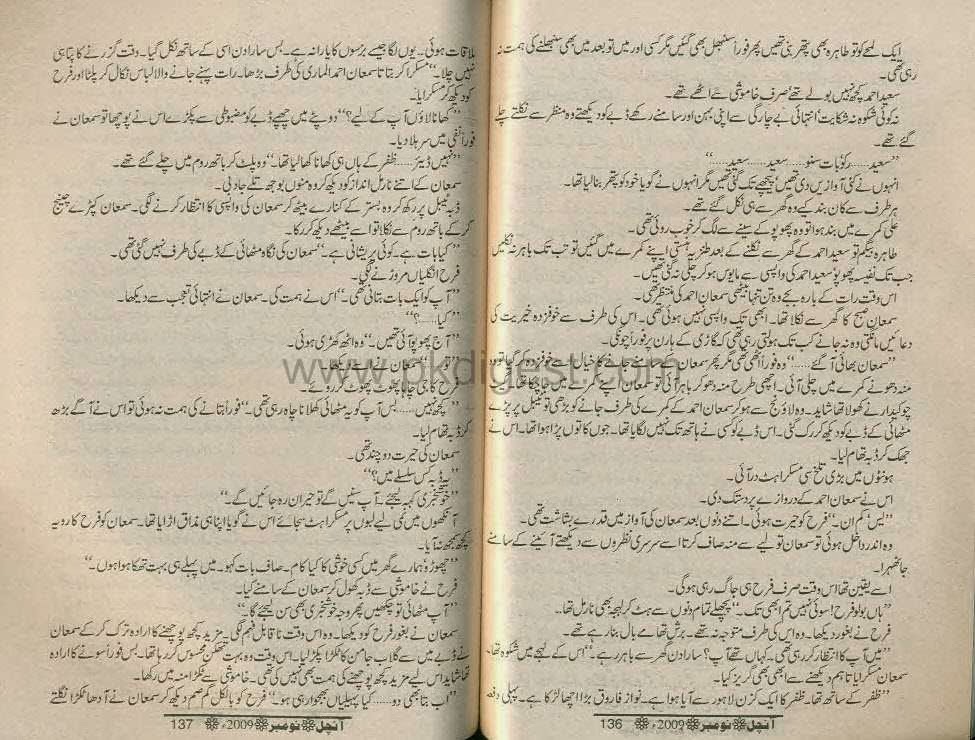 ایک لمحے کو تو طاہرہ بھی پتھر بنی تھیں پھر فوراً سنبھل بھی گئیں مگر کسی اور میں تو بعد میں بھی سنبھلنے کی ہمت نہ
رہی تھی۔
سعید احمد کچھ نہیں بولے تھے صرف خاموشی سے اٹھے تھے۔
نہ کوئی شکوہ نہ شکایت انتہائی بے چارگی سے اپنی بہن اور سامنے رکھے ڈبے کو دیکھتے وہ منظر سے نکلتے چلے
گئے تھے۔
”سعید...... رکو بات سنو...... سعید...... سعید......“
انہوں نے کئی آوازیں دی تھیں پیچھے تک گئی تھیں مگر انہوں نے گویا خود کو پتھر بنا لیا تھا۔
ہر طرف سے کان بند کیے وہ گھر سے ہی نکل گئے تھے۔
علی کمرے میں بند ہوا تو وہ پھوپو کے سینے سے لگ کر خوب روئی تھی۔
طاہرہ بیگم تو سعید احمد کے گھر سے نکلنے کے بعد طنزیہ ہنستی اپنے کمرے میں گئیں تو تب تک باہر نہ نکلیں
جب تک نفیسہ پھوپو سعید احمد کی واپسی سے مایوس ہو کر چلی نہ گئی تھیں۔
اس وقت رات کے بارہ بجے وہ تن تنہا بیٹھی سمعان احمد کی منتظر تھی۔
سمعان صبح کا گھر سے نکلا تھا۔ ابھی تک واپسی نہیں ہوئی تھی۔ اس کی طرف سے خوفزدہ خیریت کی
دعائیں مانگتی وہ نہ جانے کب تک ہولتی رہی تھی کہ گاڑی کے ہارن پر فوراً چونکی۔
”سمعان بھائی آ گئے......“ وہ فوراً اٹھی تھی مگر پھر سمعان کے سامنے جانے کا خیال ...... خوفزدہ کر گیا تو وہ
منہ دھونے کمرے میں چلی آئی۔ اچھی طرح منہ دھو کر باہر آئی تو سمعان اپنے کمرے میں جا چکا تھا۔ گیٹ
چوکیدار نے کھولا تھا شاید۔ وہ لاؤنج سے ہو کر سمعان احمد کے کمرے کی طرف جانے کو بڑھی تو ٹیبل پر پڑے
مٹھائی کے ڈبے کو دیکھ کر رک گئی۔ اس ڈبے کو کسی نے ہاتھ تک نہیں لگایا تھا۔ جوں کا توں پڑا ہوا تھا۔ اس نے
جھک کر ڈبہ تھام لیا۔
ہونٹوں میں بڑی تلخ سی مسکراہٹ در آئی۔
اس نے سمعان احمد کے دروازے پر دستک دی۔
”یس کم ان۔“ فرح کو حیرت ہوئی۔ اتنے دنوں بعد سمعان کی آواز میں قدرے بشاشت تھی۔
وہ اندر داخل ہوئی تو سمعان تولیے سے منہ صاف کرتا اسے سرسری نظروں سے دیکھتے آئینے کے سامنے
جا ٹھہرا۔
اسے یقین تھا اس وقت صرف فرح ہی جاگ رہی ہوگی۔
”ہاں بولو فرح! سوئی نہیں تم ابھی تک۔“ پچھلے تمام دنوں سے ہٹ کر لہجہ بھی نارمل تھا۔
فرح نے بغور دیکھا۔ وہ اس کی طرف متوجہ نہ تھے۔ برش تھامے بال بنا رہے تھے۔
”میں آپ کا انتظار کر رہی تھی۔ کہاں تھے آپ؟ سارا دن گھر سے باہر رہے۔“ اس کے لہجے میں شکوہ تھا۔
سمعان مسکرایا تاہم دیکھنے سے ابھی بھی گریز کیا۔
”ظفر کے ساتھ تھا۔ ظفر کا ایک کزن لاہور سے آیا ہوا ہے۔ نواز فاروق بڑا اچھا لڑکا ہے۔ پہلی دفعہ
آنچل نومبر 2009ء 136
ملاقات ہوئی۔ یوں لگا جیسے برسوں کا یارانہ ہے۔ بس سارا دن اسی کے ساتھ نکل گیا۔ وقت گزرنے کا پتا ہی
نہیں چلا۔“ مسکرا کر بتاتا سمعان احمد الماری کی طرف بڑھا۔ رات پہنے جانے والا لباس نکال کر پلٹا اور فرح
کو دیکھ کر مسکرایا۔
”کھانا لاؤں آپ کے لیے؟“ دوپٹے میں چھپے ڈبے کو مضبوطی سے پکڑے اس نے پوچھا تو سمعان نے
فوراً نفی میں سر ہلا دیا۔
”نہیں ڈیئر...... ظفر کے ہاں ہی کھانا کھا لیا تھا۔“ وہ پلٹ کر باتھ روم میں چلے گئے تھے۔
سمعان کے اتنے نارمل انداز کو دیکھ کر وہ منوں بوجھ تلے جا دبی۔
ڈبہ ٹیبل پر رکھ کر وہ بستر کے کنارے بیٹھ کر سمعان کی واپسی کا انتظار کرنے لگی۔ سمعان کپڑے چینج
کر کے باتھ روم سے نکلا تو اسے بیٹھے دیکھ کر رکا۔
”کیا بات ہے۔ کوئی پریشانی ہے۔“ سمعان کی نگاہ مٹھائی کے ڈبے کی طرف نہیں گئی تھی۔
فرح انگلیاں مروڑنے لگی۔
”آپ کو ایک بات بتانی تھی۔“ اس نے ہمت کی۔ سمعان نے انتہائی تعجب سے دیکھا۔
”کیا......؟“
”آج پھوپو آئی تھیں۔“ وہ اٹھ کھڑی ہوئی۔
”تو......“ سمعان نے اب رک کر دیکھا۔
فرح کا جی چاہا پھوٹ پھوٹ کر روئے۔
”کچھ نہیں...... بس آپ کو یہ مٹھائی کھلانا چاہ رہی تھی۔“ فوراً بتانے کی ہمت نہ ہوئی تو اس نے آگے بڑھ
کر ڈبہ تھام لیا۔
سمعان کی حیرت دو چند تھی۔
”یہ ڈبہ کس سلسلے میں؟“
”خوشخبری کہہ لیجئے۔ آپ سنیں گے تو حیران رہ جائیں گے۔“
آنکھوں میں نمی لیے لبوں پر مسکراہٹ سجائے اس نے گویا اپنا ہی مذاق اڑایا تھا۔ سمعان کو فرح کا رویہ
کچھ سمجھ نہ آیا۔
”چھوڑو ہمارے گھر میں کسی خوشی کا کیا کام۔ صاف بات کہو۔ میں پہلے ہی بہت تھکا ہوا ہوں۔“
فرح نے خاموشی سے ڈبہ کھول کر سمعان کے سامنے کیا۔
”آپ مٹھائی تو چکھیں پھر وجہ خوشخبری بھی سن لیجئے گا۔“
سمعان نے بغور فرح کو دیکھا۔ وہ اس وقت ناقابل فہم لگی۔ مزید کچھ پوچھنے کا ارادہ ترک کر کے سمعان
نے ڈبے میں سے گلاب جامن کا ٹکڑا پکڑ لیا۔ اس وقت وہ بہت تھکن محسوس کر رہا تھا۔ بس فوراً سونے کا ارادہ
تھا شاید اس لیے مزید کچھ پوچھنے کی ہمت بھی نہیں کی تھی۔ خاموشی سے ٹکڑا منہ میں رکھا۔
”اب بتا بھی دو...... کیا پہیلیاں بھجوا رہی ہو۔“ فرح کو بالکل گم صم دیکھ کر سمعان نے آدھا ٹکڑا نگلتے
آنچل نومبر 2009ء 137
www.pkdigest.com